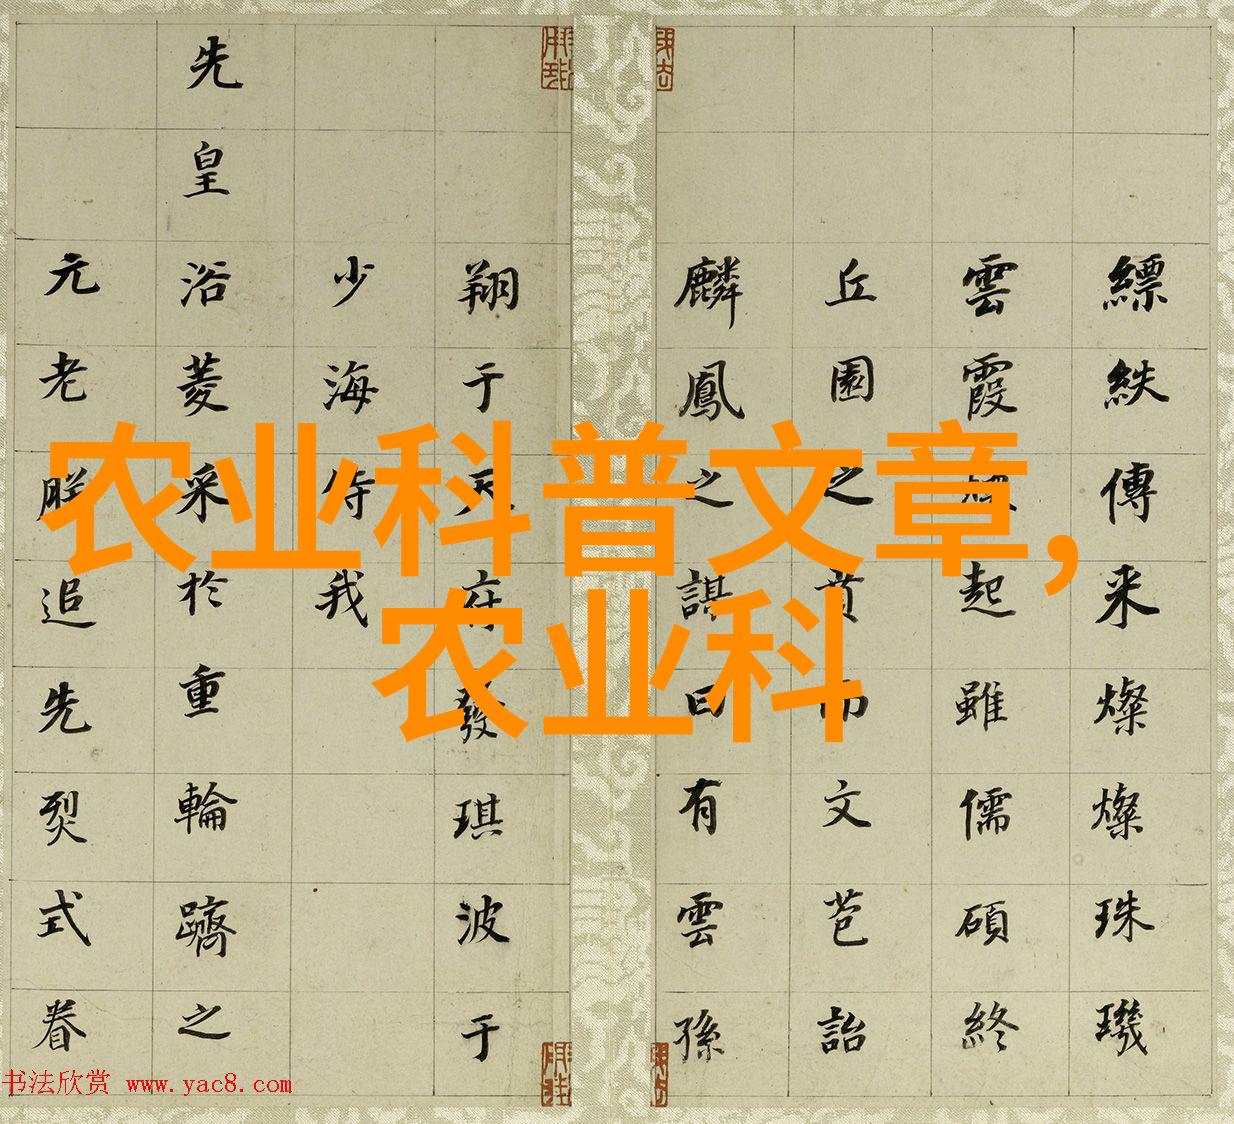 农业科普文章，
农业科
縹紩傳来燦燦珠璣
雲霞起雖儒碩終
丘園之賁而文苞詒
麟鳳之諆曰有雲孫
翔于天發琪波于
少海侍我
先皇浴菱采於重輪躋之
元老朕追先烈式眷
书法欣赏 www.yac8.com